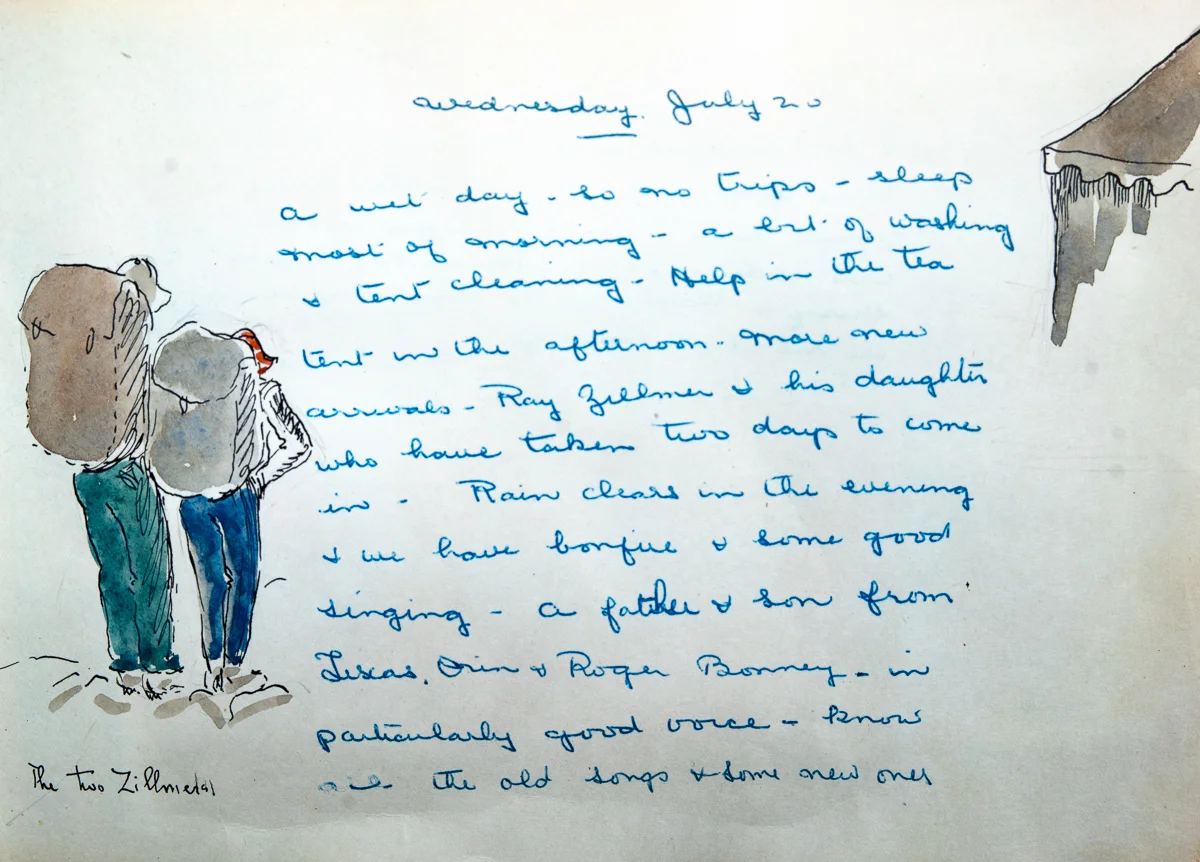 Wednesday. July 20
a wet day - so no trips - sleep
most of morning - a bit of washing
& tent cleaning - Help in the tea
tent in the afternoon - more new
arrivals - Ray Zillmer & his daughter
who have taken two days to come
in - Rain clears in the evening
& we have bonfire & some good
singing - a father & son from
Texas, Orin & Roger Bonney - in
particularly good voice - know
all the old songs & some new ones
The two Zillmers!